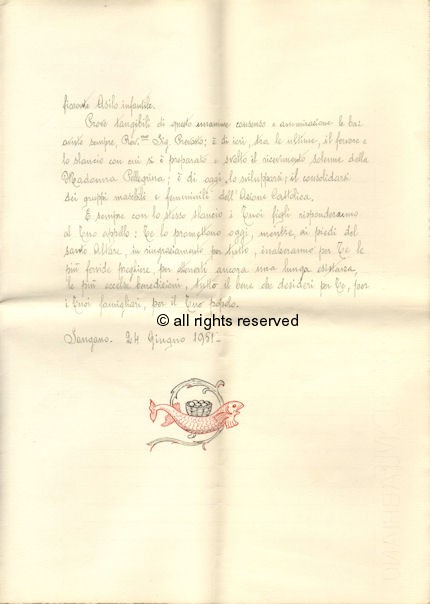 fiorente Asilo infantile.
Prove tangibili di questo unanime consenso e ammirazione le hai
avute sempre, Rev.mo Sig. Prevosto; è di ieri, tra le ultime, il fervore e
lo slancio con cui si è preparato e svolto il ricevimento solenne della
Madonna Pellegrina; è di oggi lo svilupparsi, il consolidarsi
dei gruppi maschili e femminili dell'Azione Cattolica.
E sempre con lo stesso slancio i Tuoi figli risponderanno
al Tuo appello: Te lo promettono oggi, mentre, ai piedi del
santo Altare, in ringraziamento per tutto, innalzeranno per Te le
più fervide preghiere, per ottenerti ancora una lunga esistenza,
le più elette benedizioni, tutto il bene che desideri per Te, per
i Tuoi famigliari, per il Tuo popolo.
© all rights reserved
Sangano. 24 Giugno 1951-